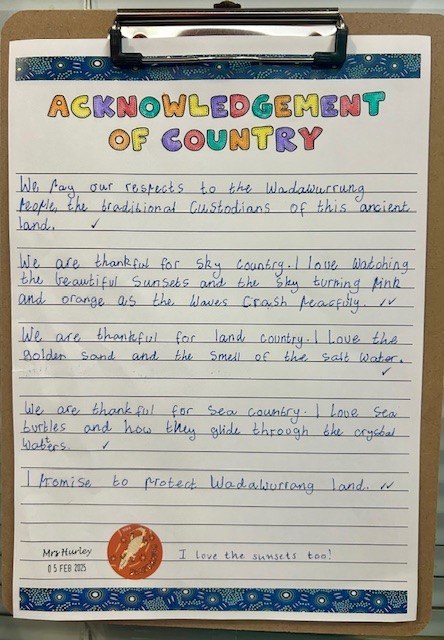 ACKNOWLEDGEMENT
OF COUNTRY
We pay our respects to the Wadawurrung
People, the traditional Custodians of this ancient
land. ✓
We are thankful for sky country. I love watching
the beautiful Sunsets and the sky turning pink
and orange as the waves crash peacfuly. ✓✓
We are thankful for land country. I Love the
golden sand and the smell of the salt water.
✓
We are thankful for sea country. I Love sea
turtles and how they glide through the crystal
waters. ✓
I Promise to protect Wadawurrang land. ✓✓
Mrs Hurley
05 FEB 2025
I love the sunsets too!